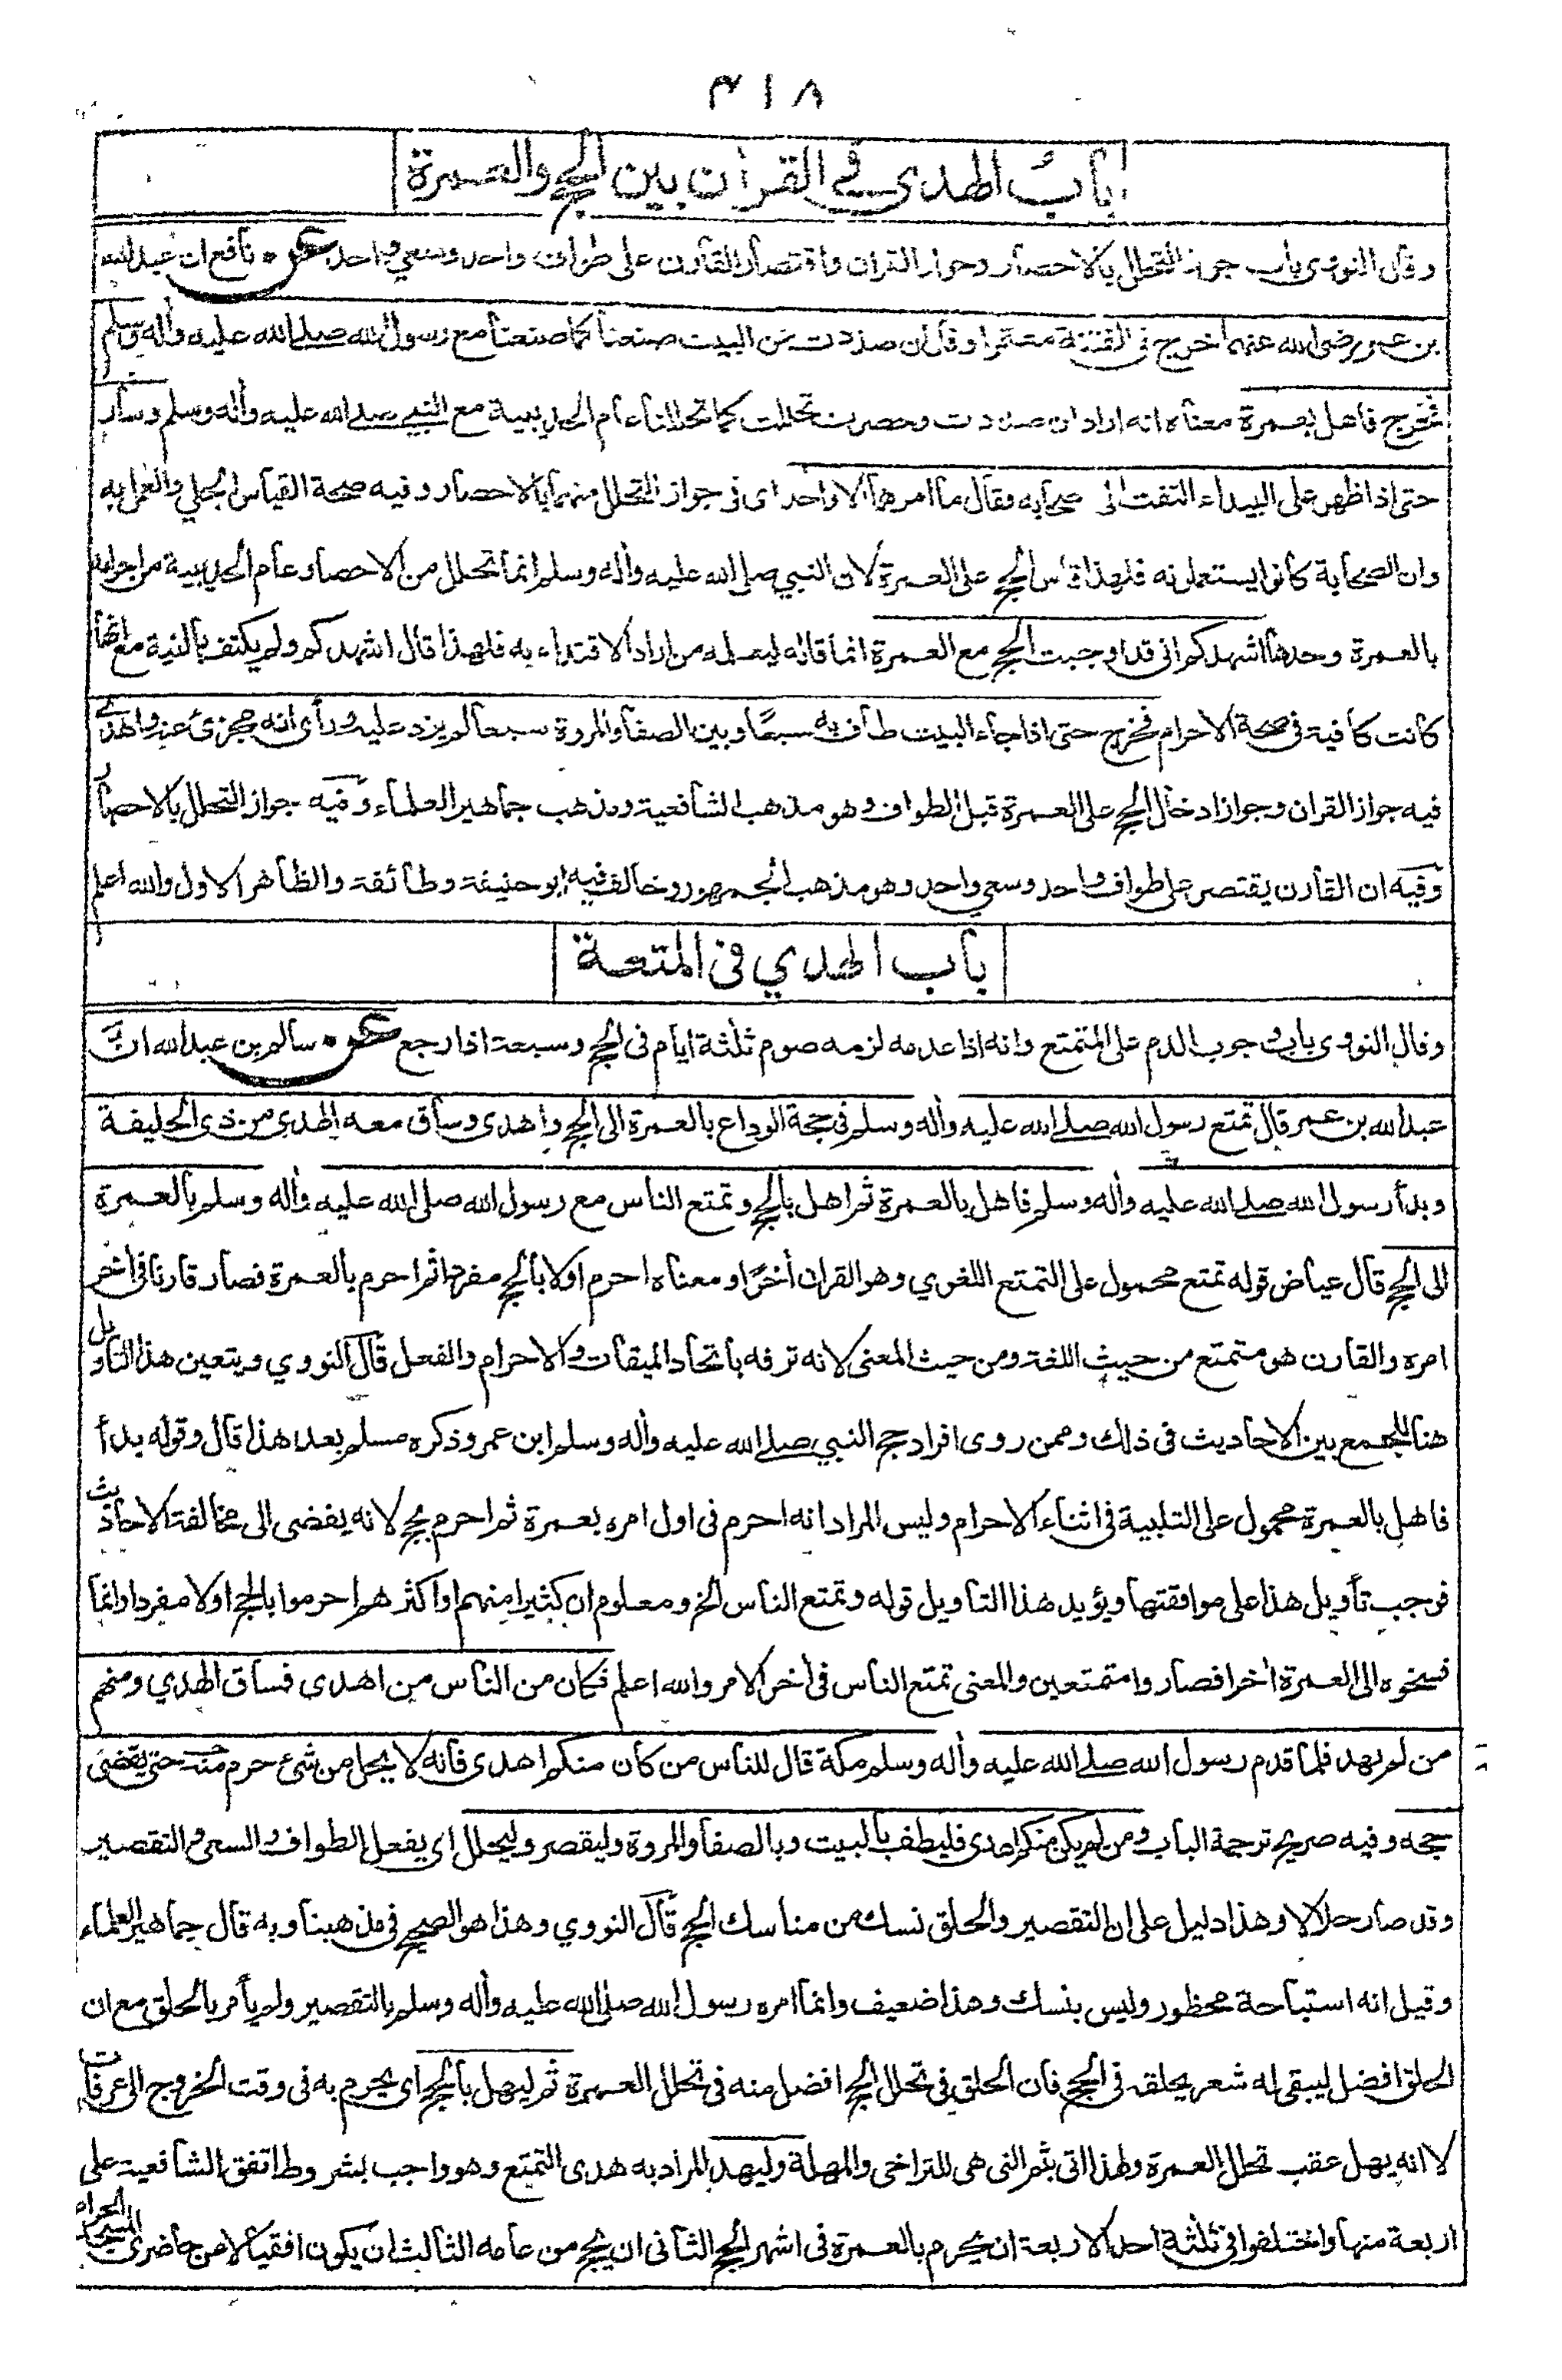 ٣١٨
باب الهدي في القران بين الحج والعمرة
وقال النووي باب جواز التحلل بالاحصار وجواز القران واقتصار القارن على طواف واحد وسعي واحد عن نافع ان عبد الله
بن عمر رضي الله عنهما خرج في الفتنة معتمرا وقال ان صددت عن البيت صنعنا كما صنعنا مع رسول الله صلى الله عليه وأله وسلم
فخرج فاهل بعمرة معناه انه اراد ان صددت وحصرت تحللت كما تحللنا عام الحديبية مع النبي صلى الله عليه وأله وسلم وسار
حتى اذا ظهر على البيداء التفت الى صحابه وقال ما امرهما الا واحد اى فى جواز التحلل منهما بالاحصار وفيه صحة القياس الجلي والعمل به
وان الصحابة كانوا يستعملونه فلهذا قاس الحج على العمرة لان النبي صلى الله عليه وأله وسلم انما تحلل من الاحصار عام الحديبية من احرامه
بالعمرة وحدها اشهدكم انى قد اوجبت الحج مع العمرة انما قاله ليعلمه من اراد الاقتداء به فلهذا قال اشهدكم ولم يكتف بالنية مع انها
كانت كافية فى صحة الاحرام فخرج حتى اذا جاء البيت طاف به سبعًا وبين الصفا والمروة سبعا لم يزد عليه ورأى انه مجزئ عنه واهدى
فيه جواز القران وجواز ادخال الحج على العمرة قبل الطواف وهو مذهب الشافعية ومذهب جماهير العلماء وفيه جواز التحلل بالاحصار
وفيه ان القارن يقتصر على طواف واحد وسعي واحد وهو مذهب الجمهور وخالف فيه ابو حنيفة وطائفة والظاهر الاول والله اعلم
باب الهدي فى المتعة
وقال النووى باب وجوب الدم على المتمتع وانه اذا عدمه لزمه صوم ثلثة ايام فى الحج وسبعة اذا رجع عن سالم بن عبد الله ان
عبد الله بن عمر قال تمتع رسول الله صلى الله عليه وأله وسلم فى حجة الوداع بالعمرة الى الحج واهدى وساق معه الهدي من ذى الحليفة
وبدأ رسول الله صلى الله عليه وأله وسلم فاهل بالعمرة ثم اهل بالحج وتمتع الناس مع رسول الله صلى الله عليه وأله وسلم بالعمرة
الى الحج قال عياض قوله تمتع محمول على التمتع اللغوي وهو القران أخرًا ومعناه احرم اولا بالحج مفردا ثم احرم بالعمرة فصار قارنا فى أخر
امره والقارن هو متمتع من حيث اللغة ومن حيث المعنى لانه ترفه باتحاد الميقات والاحرام والفعل قال النووي ويتعين هذا التأويل
هنا للجمع بين الاحاديث فى ذلك وممن روى افراد حج النبي صلى الله عليه وأله وسلم ابن عمر وذكره مسلم بعد هذا قال وقوله بدأ
فاهل بالعمرة محمول على التلبية فى اثناء الاحرام وليس المراد انه احرم فى اول امره بعمرة ثم احرم بحج لانه يفضى الى مخالفة الاحاديث
فوجب تأويل هذا على موافقتها ويؤيد هذا التأويل قوله وتمتع الناس الخ ومعلوم ان كثيرا منهم او اكثرهم احرموا بالحج اولا مفردا وانما
فسخوه الى العمرة أخرا فصاروا متمتعين والمعنى تمتع الناس فى أخر الامر والله اعلم فكان من الناس من اهدى فساق الهدي ومنهم
من لم يهد فلما قدم رسول الله صلى الله عليه وأله وسلم مكة قال للناس من كان منكم اهدى فانه لا يحل من شئ حرم منه حتى يقضى
حجه وفيه صريح ترجمة الباب ومن لم يكن منكم اهدى فليطف بالبيت وبالصفا والمروة وليقصر وليحلل اى يفعل الطواف والسعى والتقصير
وقد صار حلالا وهذا دليل على ان التقصير والحلق نسك من مناسك الحج قال النووي وهذا هو الصحيح فى مذهبنا وبه قال جماهير العلماء
وقيل انه استباحة محظور وليس بنسك وهذا ضعيف وانما امره رسول الله صلى الله عليه وأله وسلم بالتقصير ولم يأمر بالحلق مع ان
الحلق افضل ليبقى له شعر يحلقه فى الحج فان الحلق فى تحلل الحج افضل منه فى تحلل العمرة ثم ليهل بالحج اى يحرم به فى وقت الخروج الى عرفات
لا انه يهل عقب تحلل العمرة ولهذا اتى بثم التى هى للتراخى والمهلة وليهد المراد به هدى التمتع وهو واجب بشروط اتفق الشافعية على
اربعة منها واختلفوا فى ثلثة احد الاربعة ان يحرم بالعمرة فى اشهر الحج الثانى ان يحج من عامه الثالث ان يكون افقيا لا من حاضرى المسجد الحرام